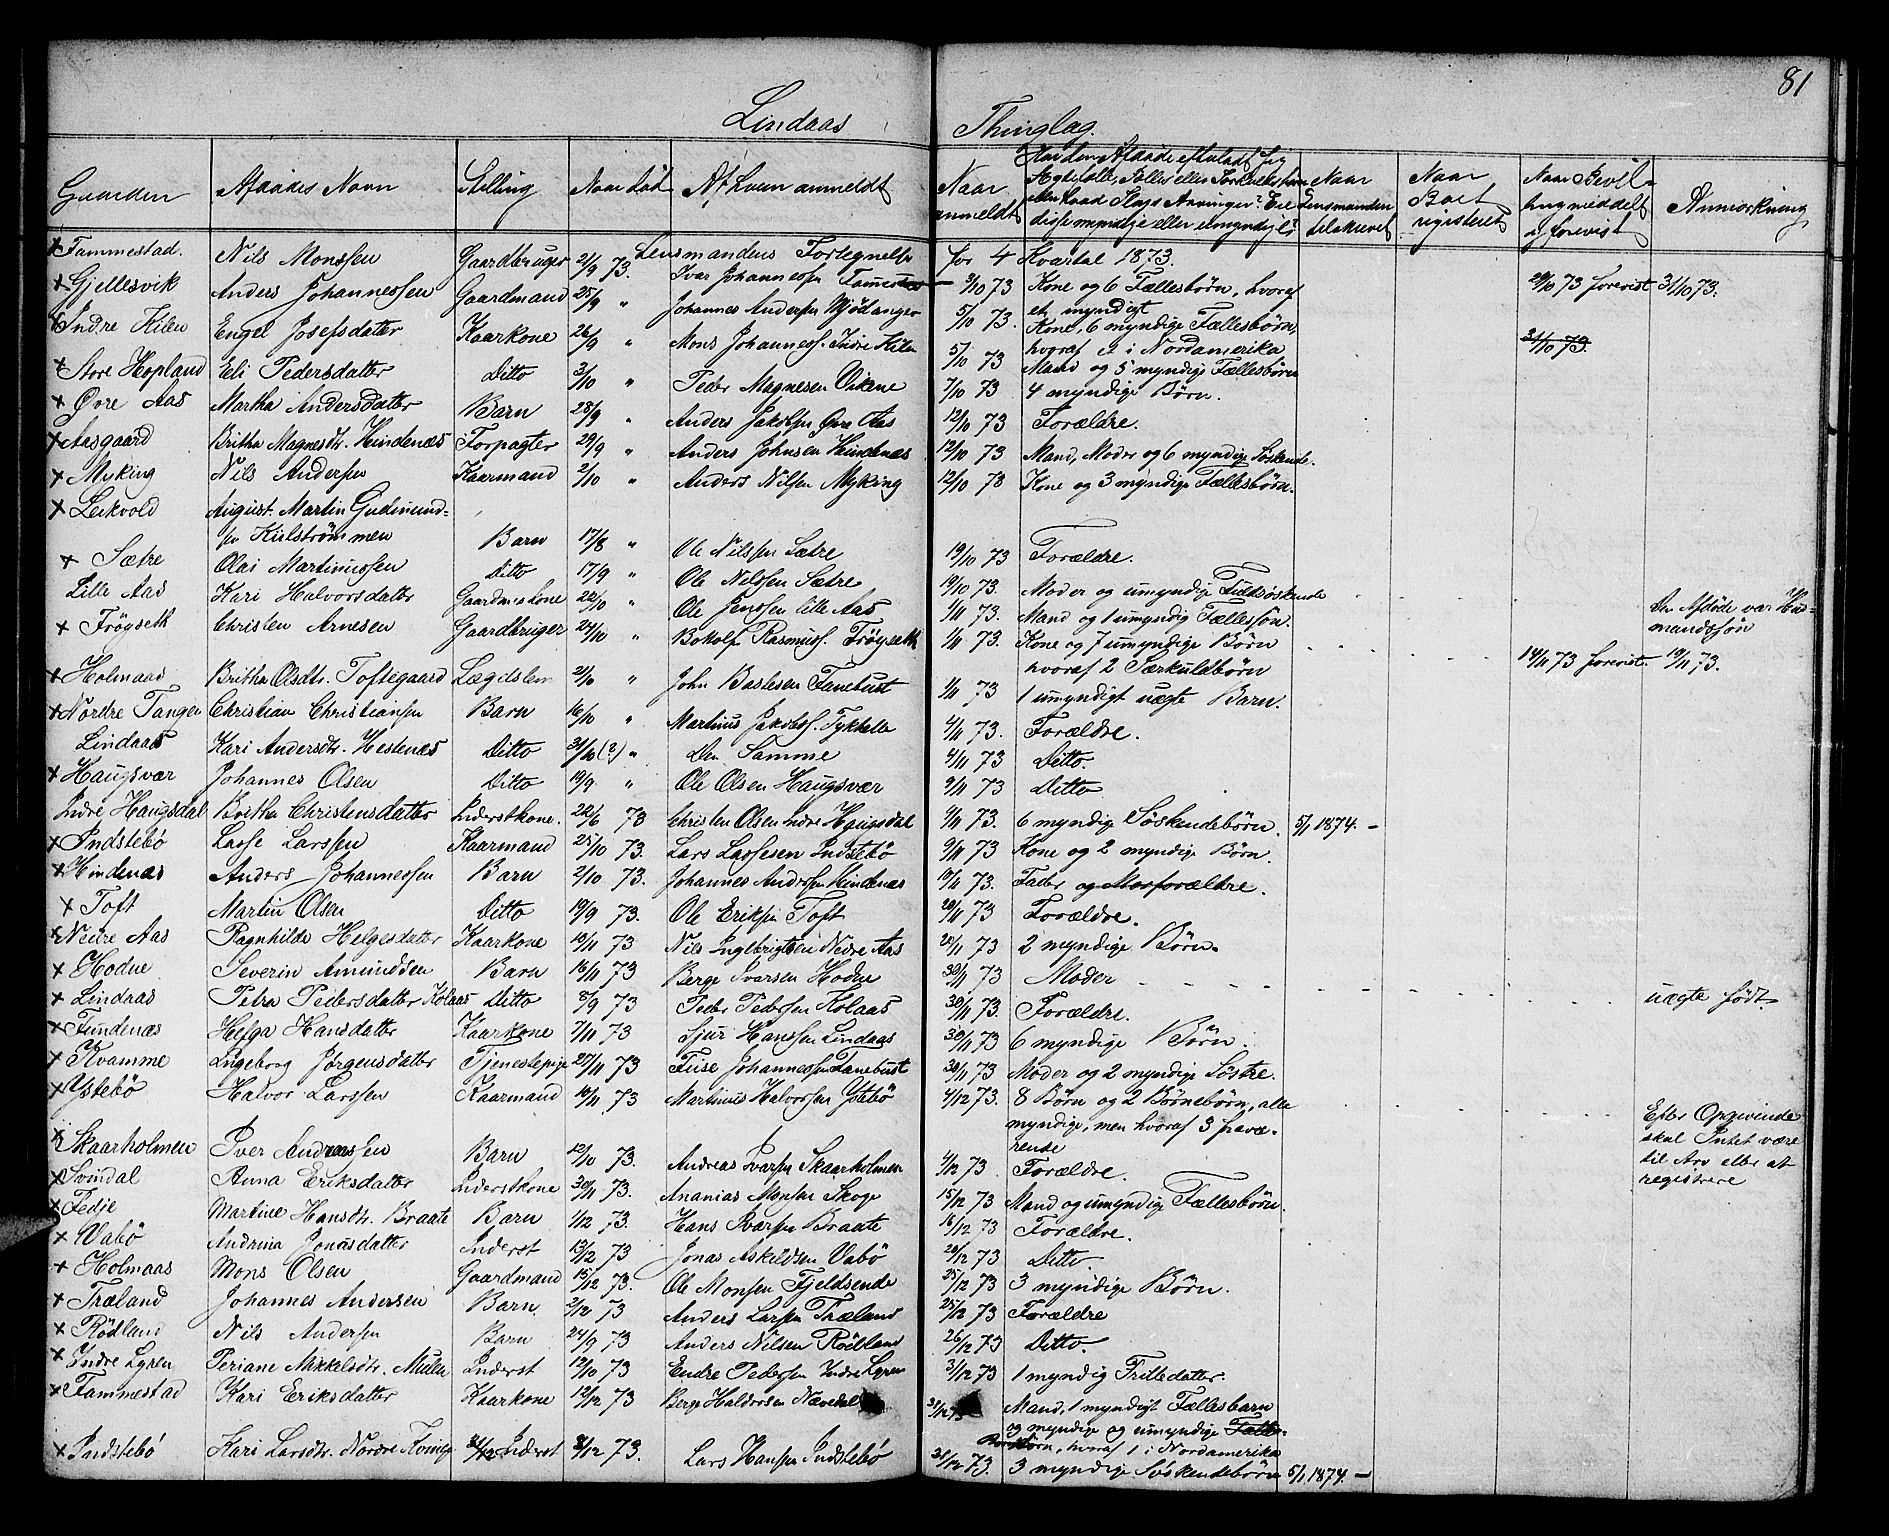 81
Lindaas Thinglag.
Gaarden Afdødes Navn Stilling Naar død Af hvem anmeldt Naar anmeldt Har den Afdøde efterladt sig Ægtefælle, Fælles eller Særkuldsbørn eller hvad Slags Arvinger? Ere disse myndige eller umyndige? Naar Lensmanden tilskrevet Naar Boet registreret Naar Bevilling meddelt og forevist Anmærkning
Lensmandens Fortegnelse for 4 Kvartal 1873.
x Tammestad. Nils Monssen Gaardbruger 21/9 73. Ivar Johannessen Tammestad 3/10 73 Kone og 6 Fællesbørn, hvoraf et myndigt 29/10 73 forevist 31/10 73.
x Gjellesvik Anders Johannessen Gaardmand 25/9 " Johannes Andersen Mjødanger 5/10 73. Kone, 6 myndige Fællesbørn, hvoraf et i Nordamerika 31/10 73.
x Indre Kilen Engel Josefsdatter Kaarkone 26/9 " Mons Johanness. Indre Kilen 5/10 73 Mand og 5 myndige Fællesbørn
x Store Hopland Eli Pedersdatter Ditto 3/10 " Peder Magnesen Vikene 7/10 73 4 myndige Børn.
x Øvre Aas Martha Andersdatter Barn 28/9 " Anders Jakobsen Øvre Aas 12/10 73 Forældre.
x Aasgaard Britha Magnesdtr. Hindenæs Forpagter 29/9 " Anders Johnsen Hindenæs 12/10 73 Mand, Moder og 6 myndige Søskende.
x Myking Nils Andersen Kaarmand 2/10 " Anders Nilsen Myking 12/10 73 Kone og 3 myndige Fællesbørn.
x Leikvold August Martin Gudmund-
sen Kirlstrømmen Barn 17/8 " Ole Nilssen Sætre 19/10 73 Forældre.
x Sætre Olai Martinussen Ditto 17/9 " Ole Nilssen Sætre 19/10 73. Moder og umyndige Fuldsøskende
Lille Aas Kari Halvorsdatter Gaardmeskone 22/10 " Ole Jenssen lille Aas 1/11 73. Mand og 1 umyndig Fællessøn. Den Afdøde var Husmandssøn
x Frøyseth Christen Arnesen Gaardbruger 24/10 " Botolf Rasmuss. Frøyseth 1/11 73. Kone og 7 umyndige Børn hvoraf 2 Særkuldbørn 14/11 73 forevist. 19/11 73.
x Holmaas Britha Olsdtr. Toftegaard Lægdslem 21/10 " John Baslesen Fanebust 1/11 73 1 umyndigt uægte Barn.
x Nordre Tangen Christian Christiansen Barn 16/10 " Martinus Jakobss. Tykhelle 4/11 73. Forældre.
Lindaas Kari Andersdtr. Hestenæs Ditto 31/10 (?) " Den Samme 4/11 73 Ditto.
x Haugsvær Johannes Olsen Ditto 19/9 " Ole Olsen Haugsvær 9/11 73 Ditto
Indre Haugsdal Britha Christensdatter Inderstkone. 22/6 73 Christen Olsen Indre Haugsdal 9/11 73. 6 myndige Søskendebørn. 5/1 1874. -
x Indstebø Lasse Larssen Kaarmand 25/10 73. Lars Lassesen Indstebø 9/11 73 Kone og 2 myndige Børn.
x Hindenæs Anders Johannessen Barn 2/10 73. Johannes Andersen Hindenæs 19/11 73. Fader og Morforældre.
x Toft Martin Olsen Ditto 19/9 73. Ole Eriksen Toft 20/11 73 Forældre.
x Nedre Aas Ragnhilde Helgesdatter Kaarkone 19/11 73 Nils Ingebrigtsen Nedre Aas 20/11 73 2 myndige Børn.
x Hodne Severin Amundsen Barn 16/11 73 Berge Iversen Hodne 30/11 73 Moder uægte født.
x Lindaas Petra Pedersdatter Kolaas Ditto 8/9 73 Peder Pedersen Kolaas 30/11 73. Forældre.
x Fundenæs Helga Hansdatter Kaarkone 7/11 73 Sjur Hanssen Lindaas 30/11 73 6 myndige Børn.
x Kvamme Ingeborg Jørgensdatter Tjenestepige 27/11 73 Fuse Johannessen Fanebust 30/11 73 Moder og 2 myndige Søstre.
x Ystebø Halvor Larssen Kaarmand 10/11 73 Martinus Halvorsen Ystebø 4/12 73. 8 Børn og 2 Børnebørn, alle myndige, men hvoraf 3 fraværende Efter Opgivende skal Intet være til Arv eller at registrere
x Skaarholmen Iver Andreassen Barn 12/10 73. Andreas Ivarsen Skaarholmen 4/12 73. Forældre.
x Svindal Anna Eriksdatter Inderstkone 30/11 73. Ananias Monsen Skoge 15/12 73 Mand og umyndig Fællesbørn.
x Fedje Martine Hansdtr. Braate Barn 1/12 73. Hans Ivarsen Braate 16/12 73 Forældre.
x Vabø Andrina Jonasdatter Inderst 13/12 73 Jonas Askildsen Vabø 20/12 73 Ditto.
x Holmaas Mons Olsen Gaardmand 15/12 73. Ole Monsen Fjeldsende 25/12 73 3 myndige Børn.
x Træland Johannes Andersen Barn. 2/12 73 Anders Larsen Træland 25/12 73 Forældre
x Rødland Nils Andersen Barn 24/9 73 Anders Nilsen Rødland 26/12 73 Ditto.
x Indre Lyren Periane Mikkelsdtr. Mulen Inderst 19/10 73 Endre Pedersen Indre Lyren 31/12 73 1 myndig Frilledatter.
x Tammestad Kari Eriksdatter Kaarkone 12/12 73 Berge Haldorsen Nævedal 31/12 73 Mand, 1 myndigt Fællesbarn og myndige og umyndige Børnebørn, hvoraf 1 i Nordamerika
x Indstebø Kari Larsdtr. Nordre Kvinge Inderst 31/12 73. Lars Hansen Indstebø 31/12 73. 3 myndige Søskendebørn 5/1 1874. -